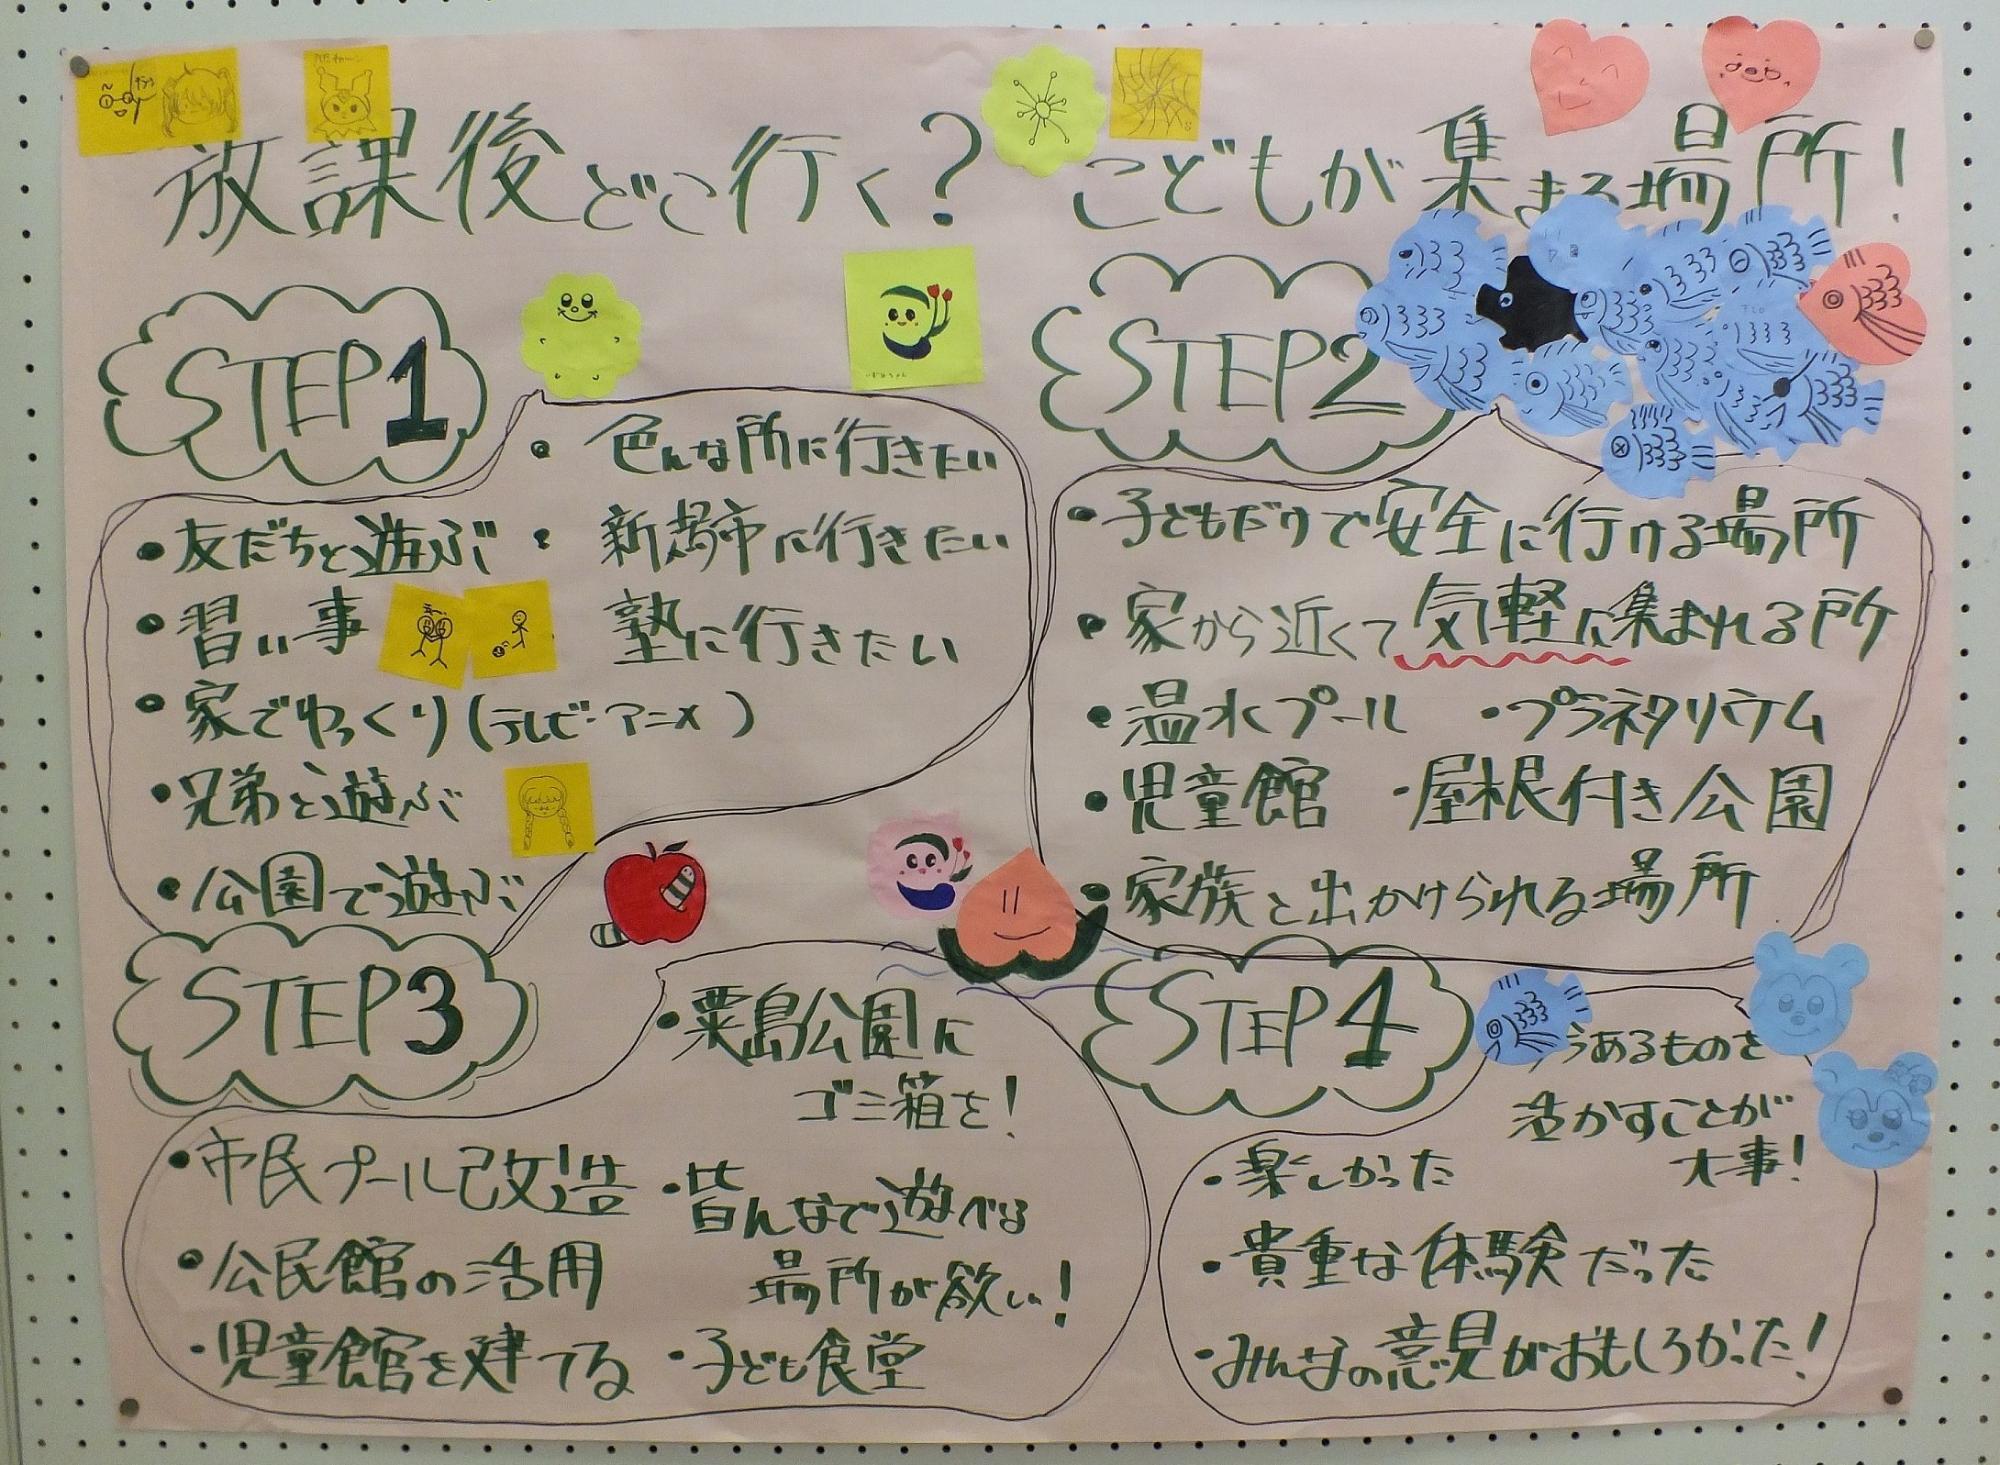 放課後どこ行く？ こどもが集まる場所！
STEP1
・色んな所に行きたい
・友だちと遊ぶ
・新潟市に行きたい
・習い事
塾に行きたい
・家でゆっくり(テレビ・アニメ)
・兄弟と遊ぶ
・公園で遊ぶ
STEP2
・子どもだけで安全に行ける場所
・家から近くて気軽に集まれる所
・温水プール ・プラネタリウム
・児童館 ・屋根付き公園
・家族と出かけられる場所
STEP3
・粟島公園に
ゴミ箱を！
・市民プール改造
・皆んなで遊べる
場所が欲しい！
・公民館の活用
・児童館を建てる
・子ども食堂
STEP4
今あるものを
活かすことが
大事！
・楽しかった
・貴重な体験だった
・みんなの意見がおもしろかった！